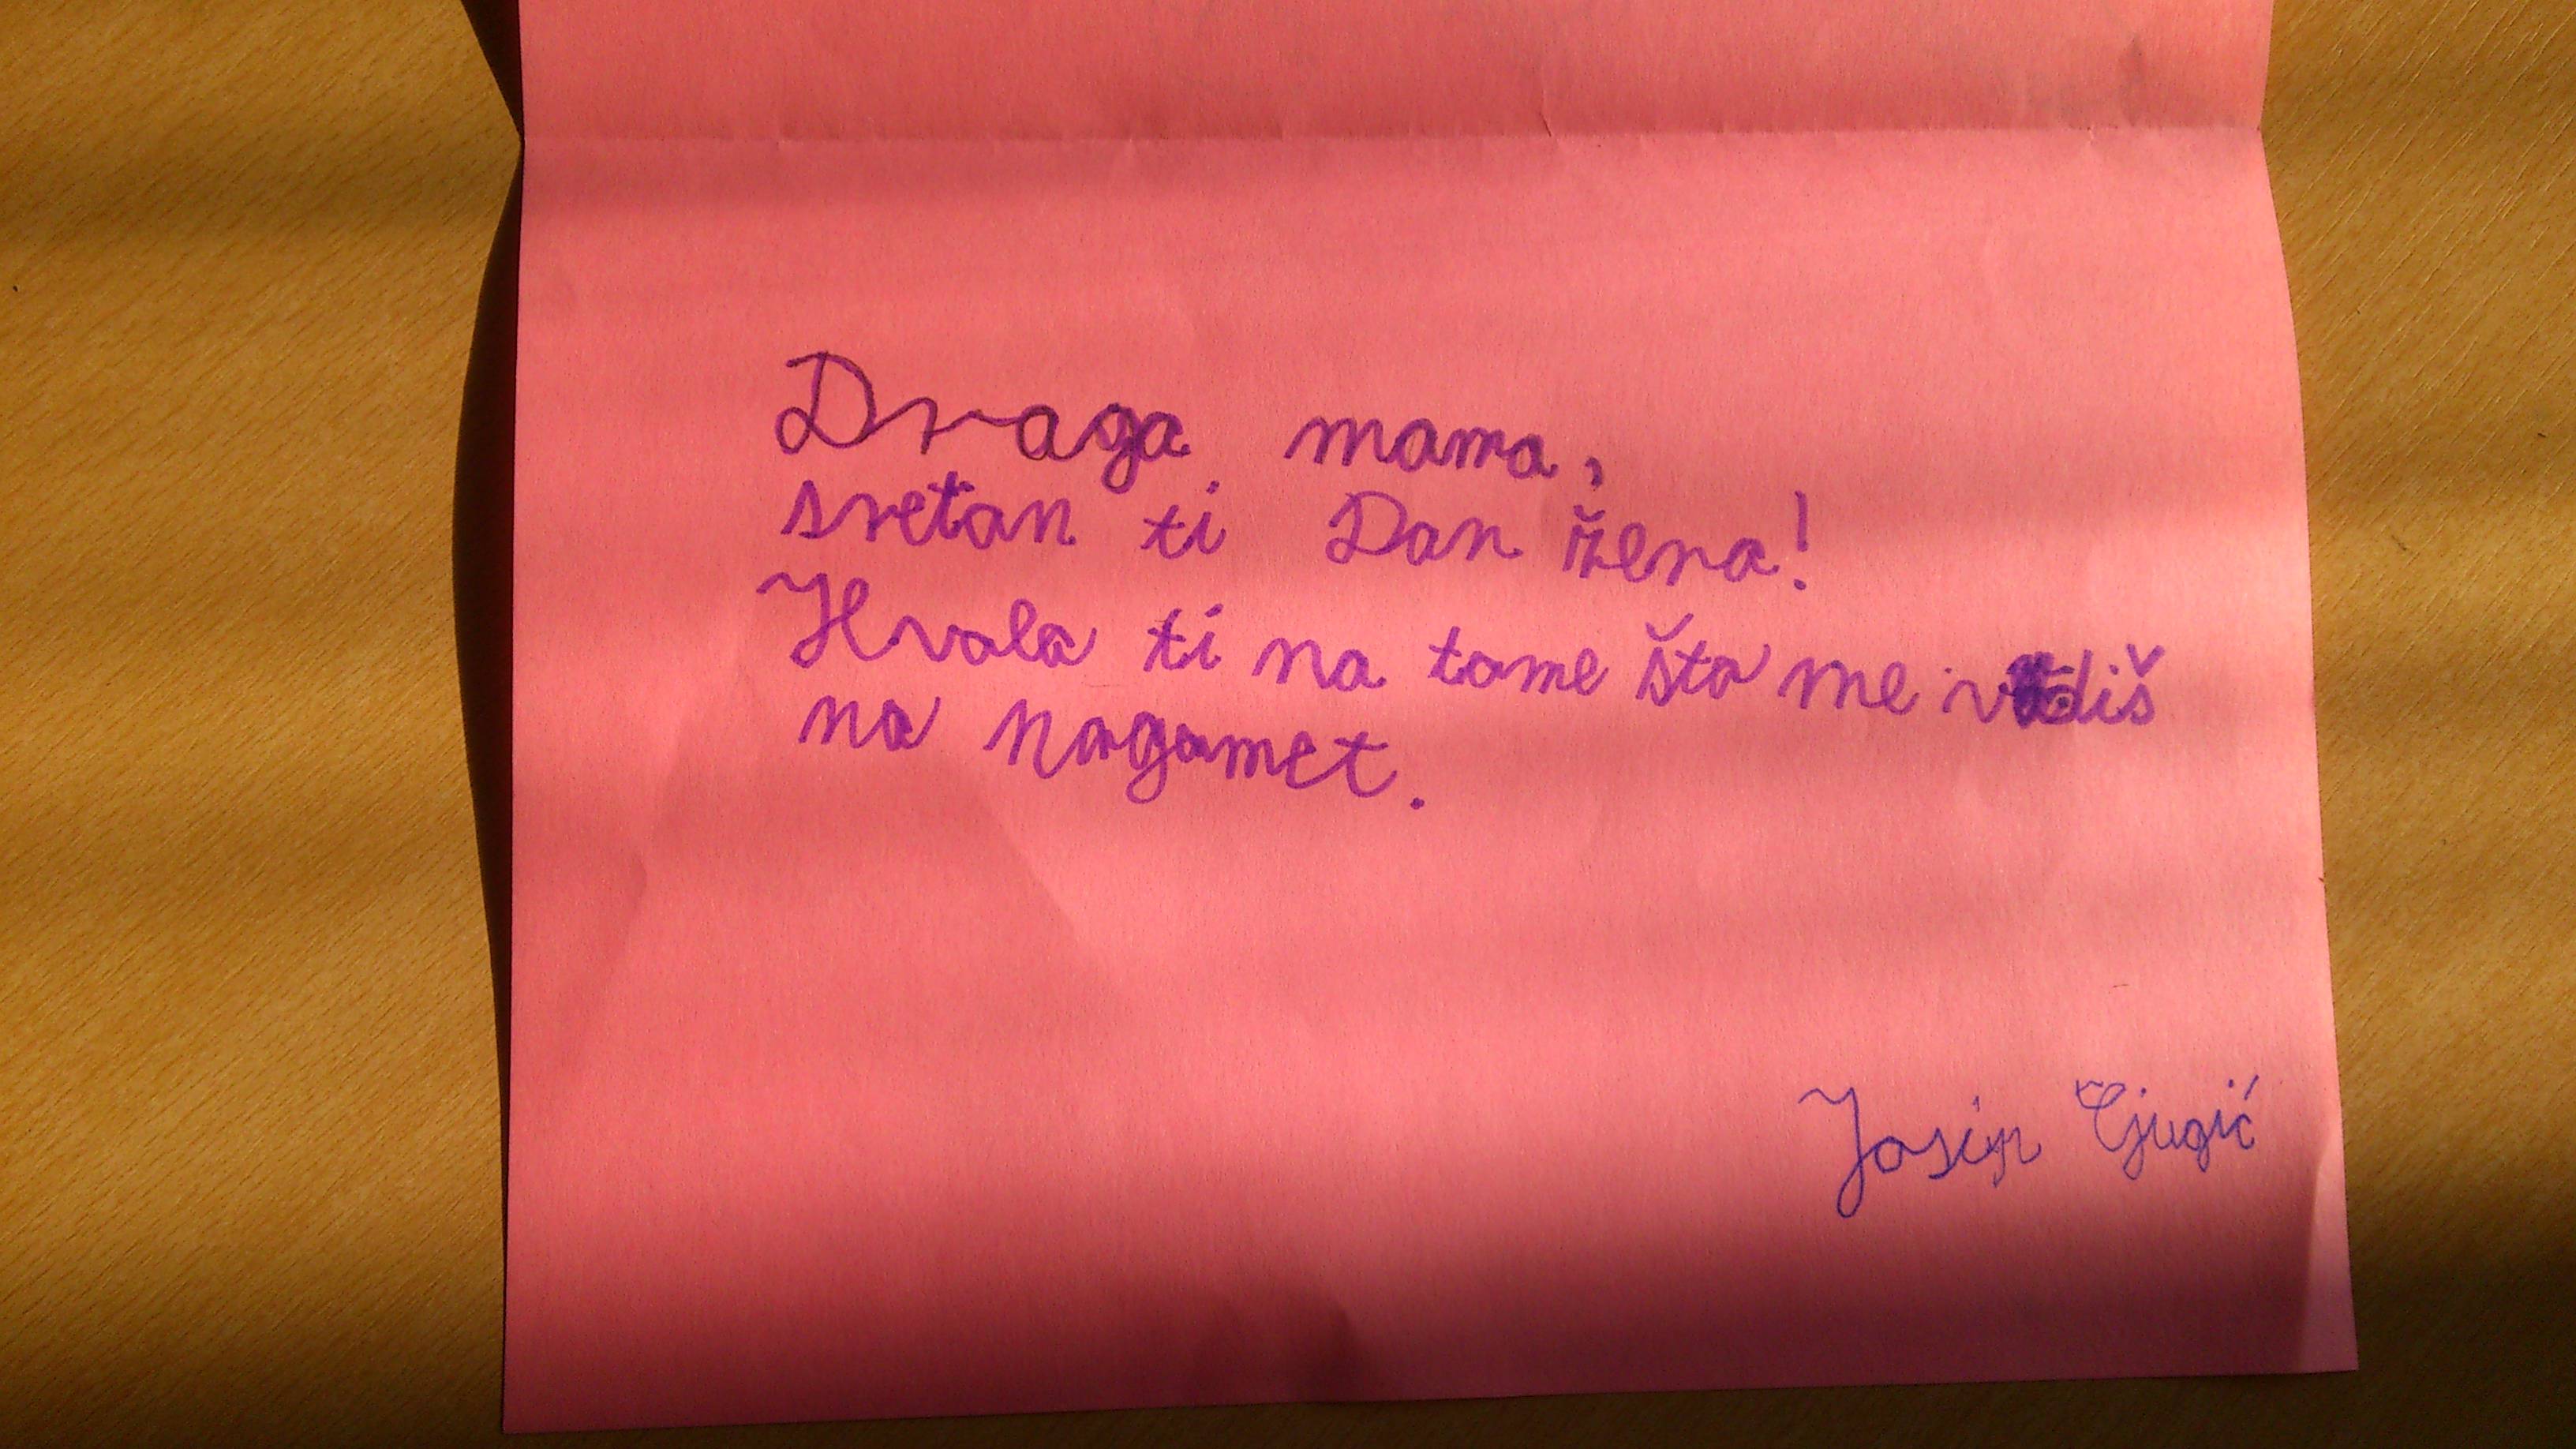 Draga mama,
sretan ti Dan žena!
Hvala ti na tome šta me vodiš
na nogomet.
Josip